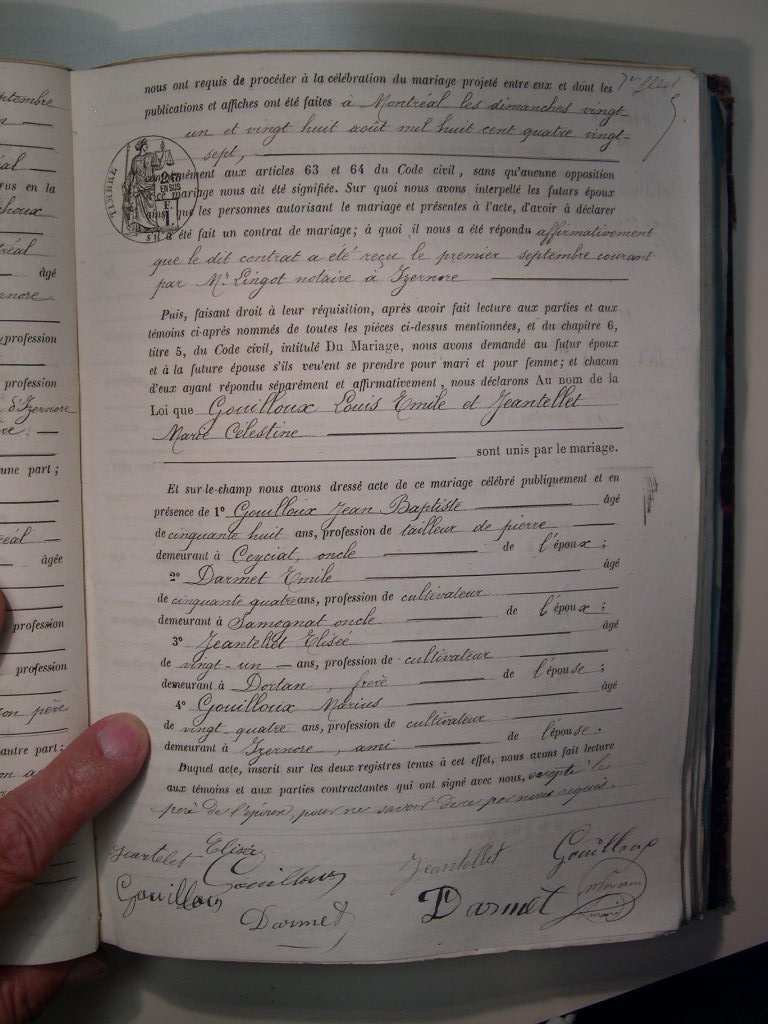 nous ont requis de procéder à la célébration du mariage projeté entre eux et dont les
publications et affiches ont été faites à Montréal les dimanches vingt
un et vingt huit août mil huit cent quatre vingt-
sept,
conformément aux articles 63 et 64 du Code civil, sans qu'aucune opposition
à ce mariage nous ait été signifiée. Sur quoi nous avons interpellé les futurs époux
ainsi que les personnes autorisant le mariage et présentes à l'acte, d'avoir à déclarer
s'il a été fait un contrat de mariage; à quoi il nous a été répondu affirmativement
que le dit contrat a été reçu le premier septembre courant
par Mr Lingot notaire à Izernore
Puis, faisant droit à leur réquisition, après avoir fait lecture aux parties et aux
témoins ci-après nommés de toutes les pièces ci-dessus mentionnées, et du chapitre 6,
titre 5, du Code civil, intitulé Du Mariage, nous avons demandé au futur époux
et à la future épouse s'ils veulent se prendre pour mari et pour femme; et chacun
d'eux ayant répondu séparément et affirmativement, nous déclarons Au nom de la
Loi que Gouilloux Louis Emile et Jeantellet
Marie Célestine
sont unis par le mariage.
Et sur-le-champ nous avons dressé acte de ce mariage célébré publiquement et en
présence de 1° Gouilloux Jean Baptiste âgé
de cinquante huit ans, profession de tailleur de pierre
demeurant à Ceyciat, oncle de l'époux;
2° Darmet Emile âgé
de cinquante quatre ans, profession de cultivateur
demeurant à Samognat oncle de l'époux;
3° Jeantellet Elisée âgé
de vingt-un ans, profession de cultivateur
demeurant à Dortan, frère de l'épouse;
4° Gouilloux Marius âgé
de vingt quatre ans, profession de cultivateur
demeurant à Izernore, ami de l'épouse.
Duquel acte, inscrit sur les deux registres tenus à cet effet, nous avons fait lecture
aux témoins et aux parties contractantes qui ont signé avec nous, excepté le
père de l'époux, pour ne savoir de ce par nous requis.
Jeantelet Elisée Jeantellet Gouilloux
Gouilloux Gouilloux
Darmet Darmet
TIMBRE
septembre
réal
rus en la
Izernore
âgé
profession
profession
d'Izernore
une part;
âgée
profession
profession
son père
autre part;